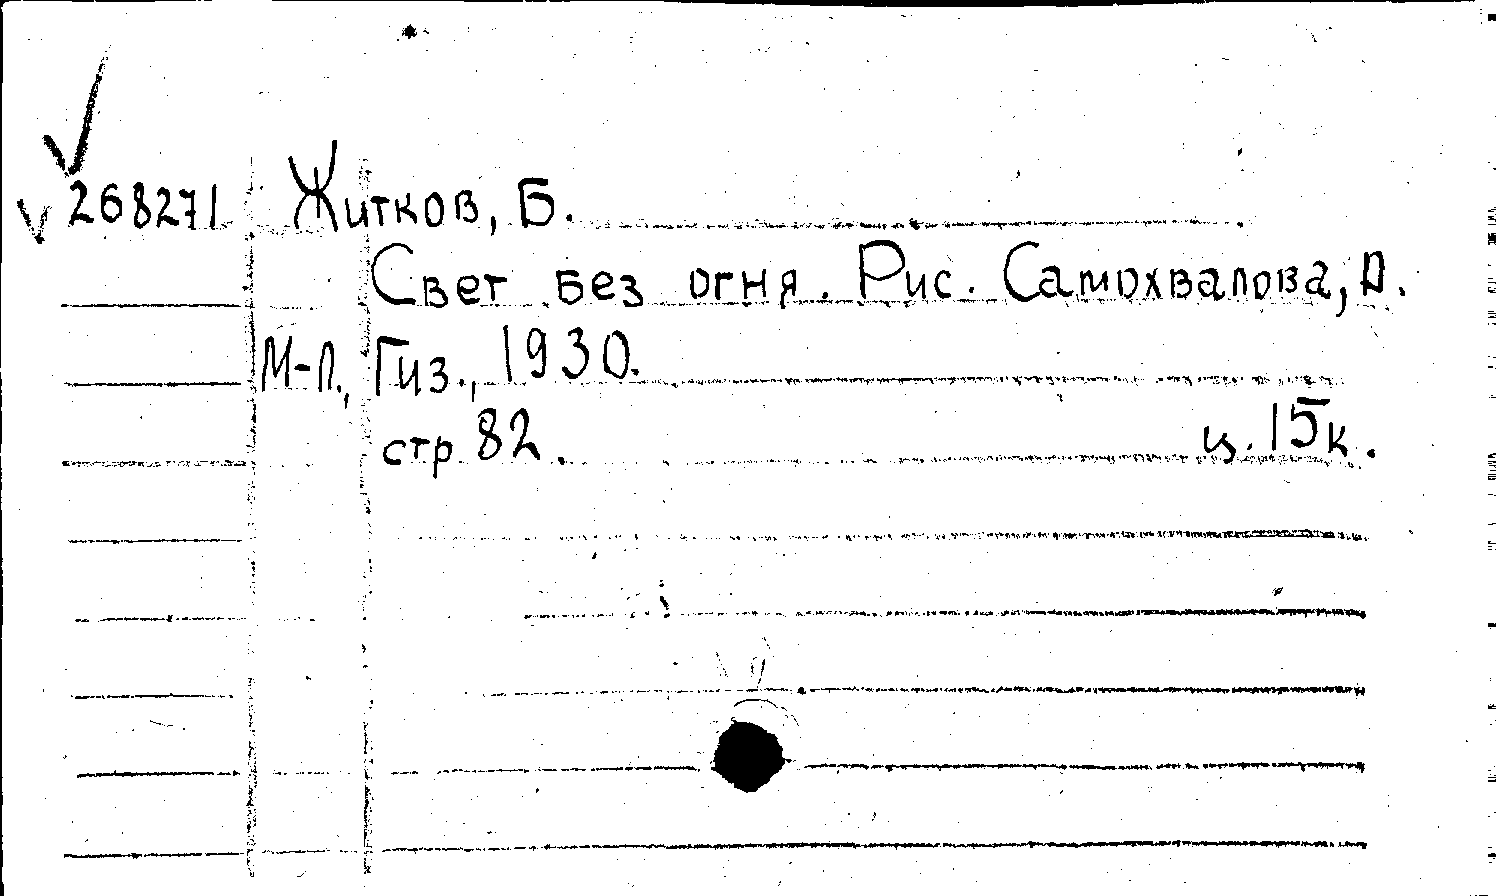 268271 Житков, Б.
Свет без огня. Рис. Самохвалова, А.
М-Л., Гиз., 1930.
стр 82. ц. 15к.